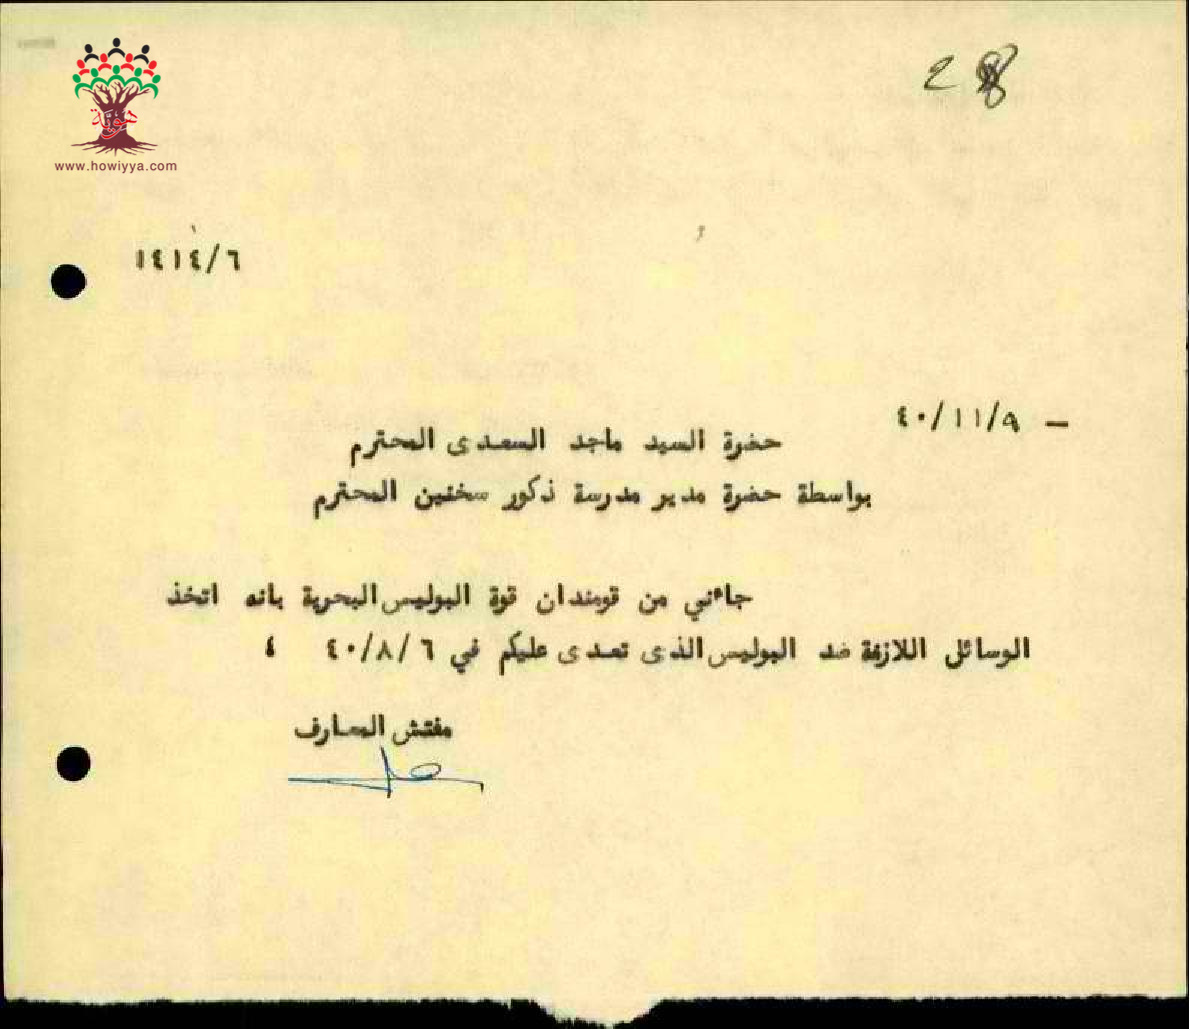 28
هوية
www.howiyya.com
١٤١٤/٦
٤٠/١١/٩ –
حضرة السيد ماجد السعدى المحترم
بواسطة حضرة مدير مدرسة ذكور سخنين المحترم
جاءني من قومندان قوة البوليس البحرية بانه اتخذ
الوسائل اللازمة ضد البوليس الذى تعدى عليكم في ٤٠/٨/٦ ،
مفتش المعارف